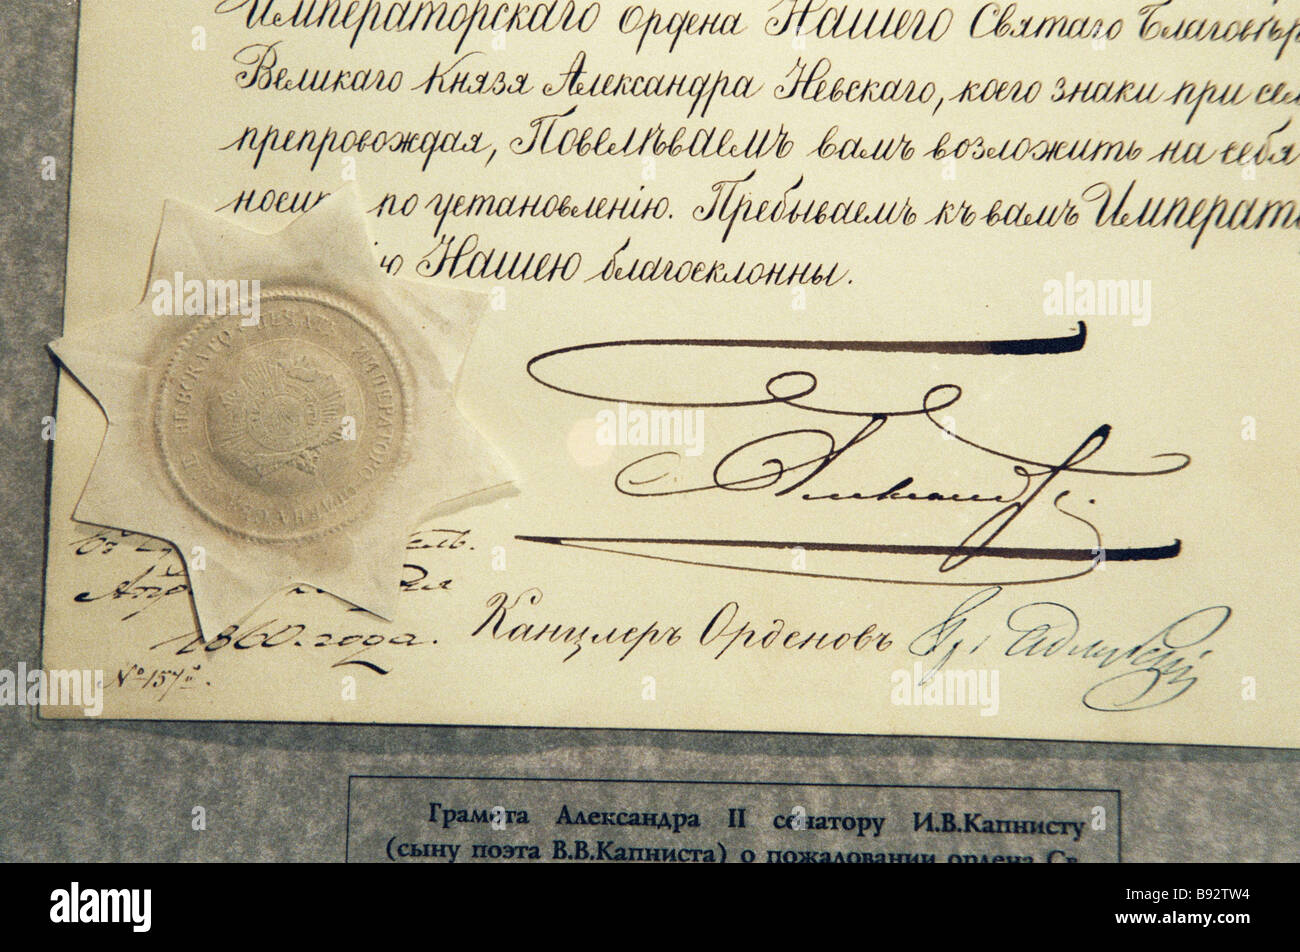 Императорскаго Ордена Нашего Святаго Благовѣр
Великаго Князя Александра Невскаго, коего знаки при сем
препровождая, Повелѣваемъ вамъ возложить на себя
по установленію. Пребываемъ къ вамъ Императ
ію Нашею благосклонны.
НЕВСКАГО ПЕЧАТЬ ИМПЕРАТОРС ОРДЕНА СВ.
Александръ
1860. года.
№ 157
Канцлеръ Орденовъ Гр. Адлербергъ
Грамота Александра II сенатору И.В.Капнисту
(сыну поэта В.В.Капниста) о пожаловании ордена Св.
alamy
Image ID: B92TW4
www.alamy.com